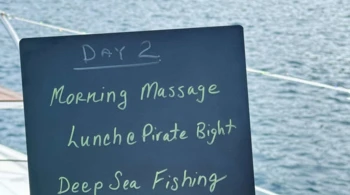 DAY 2
Morning Massage
Lunch @ Pirate Bight
Deep Sea Fishing